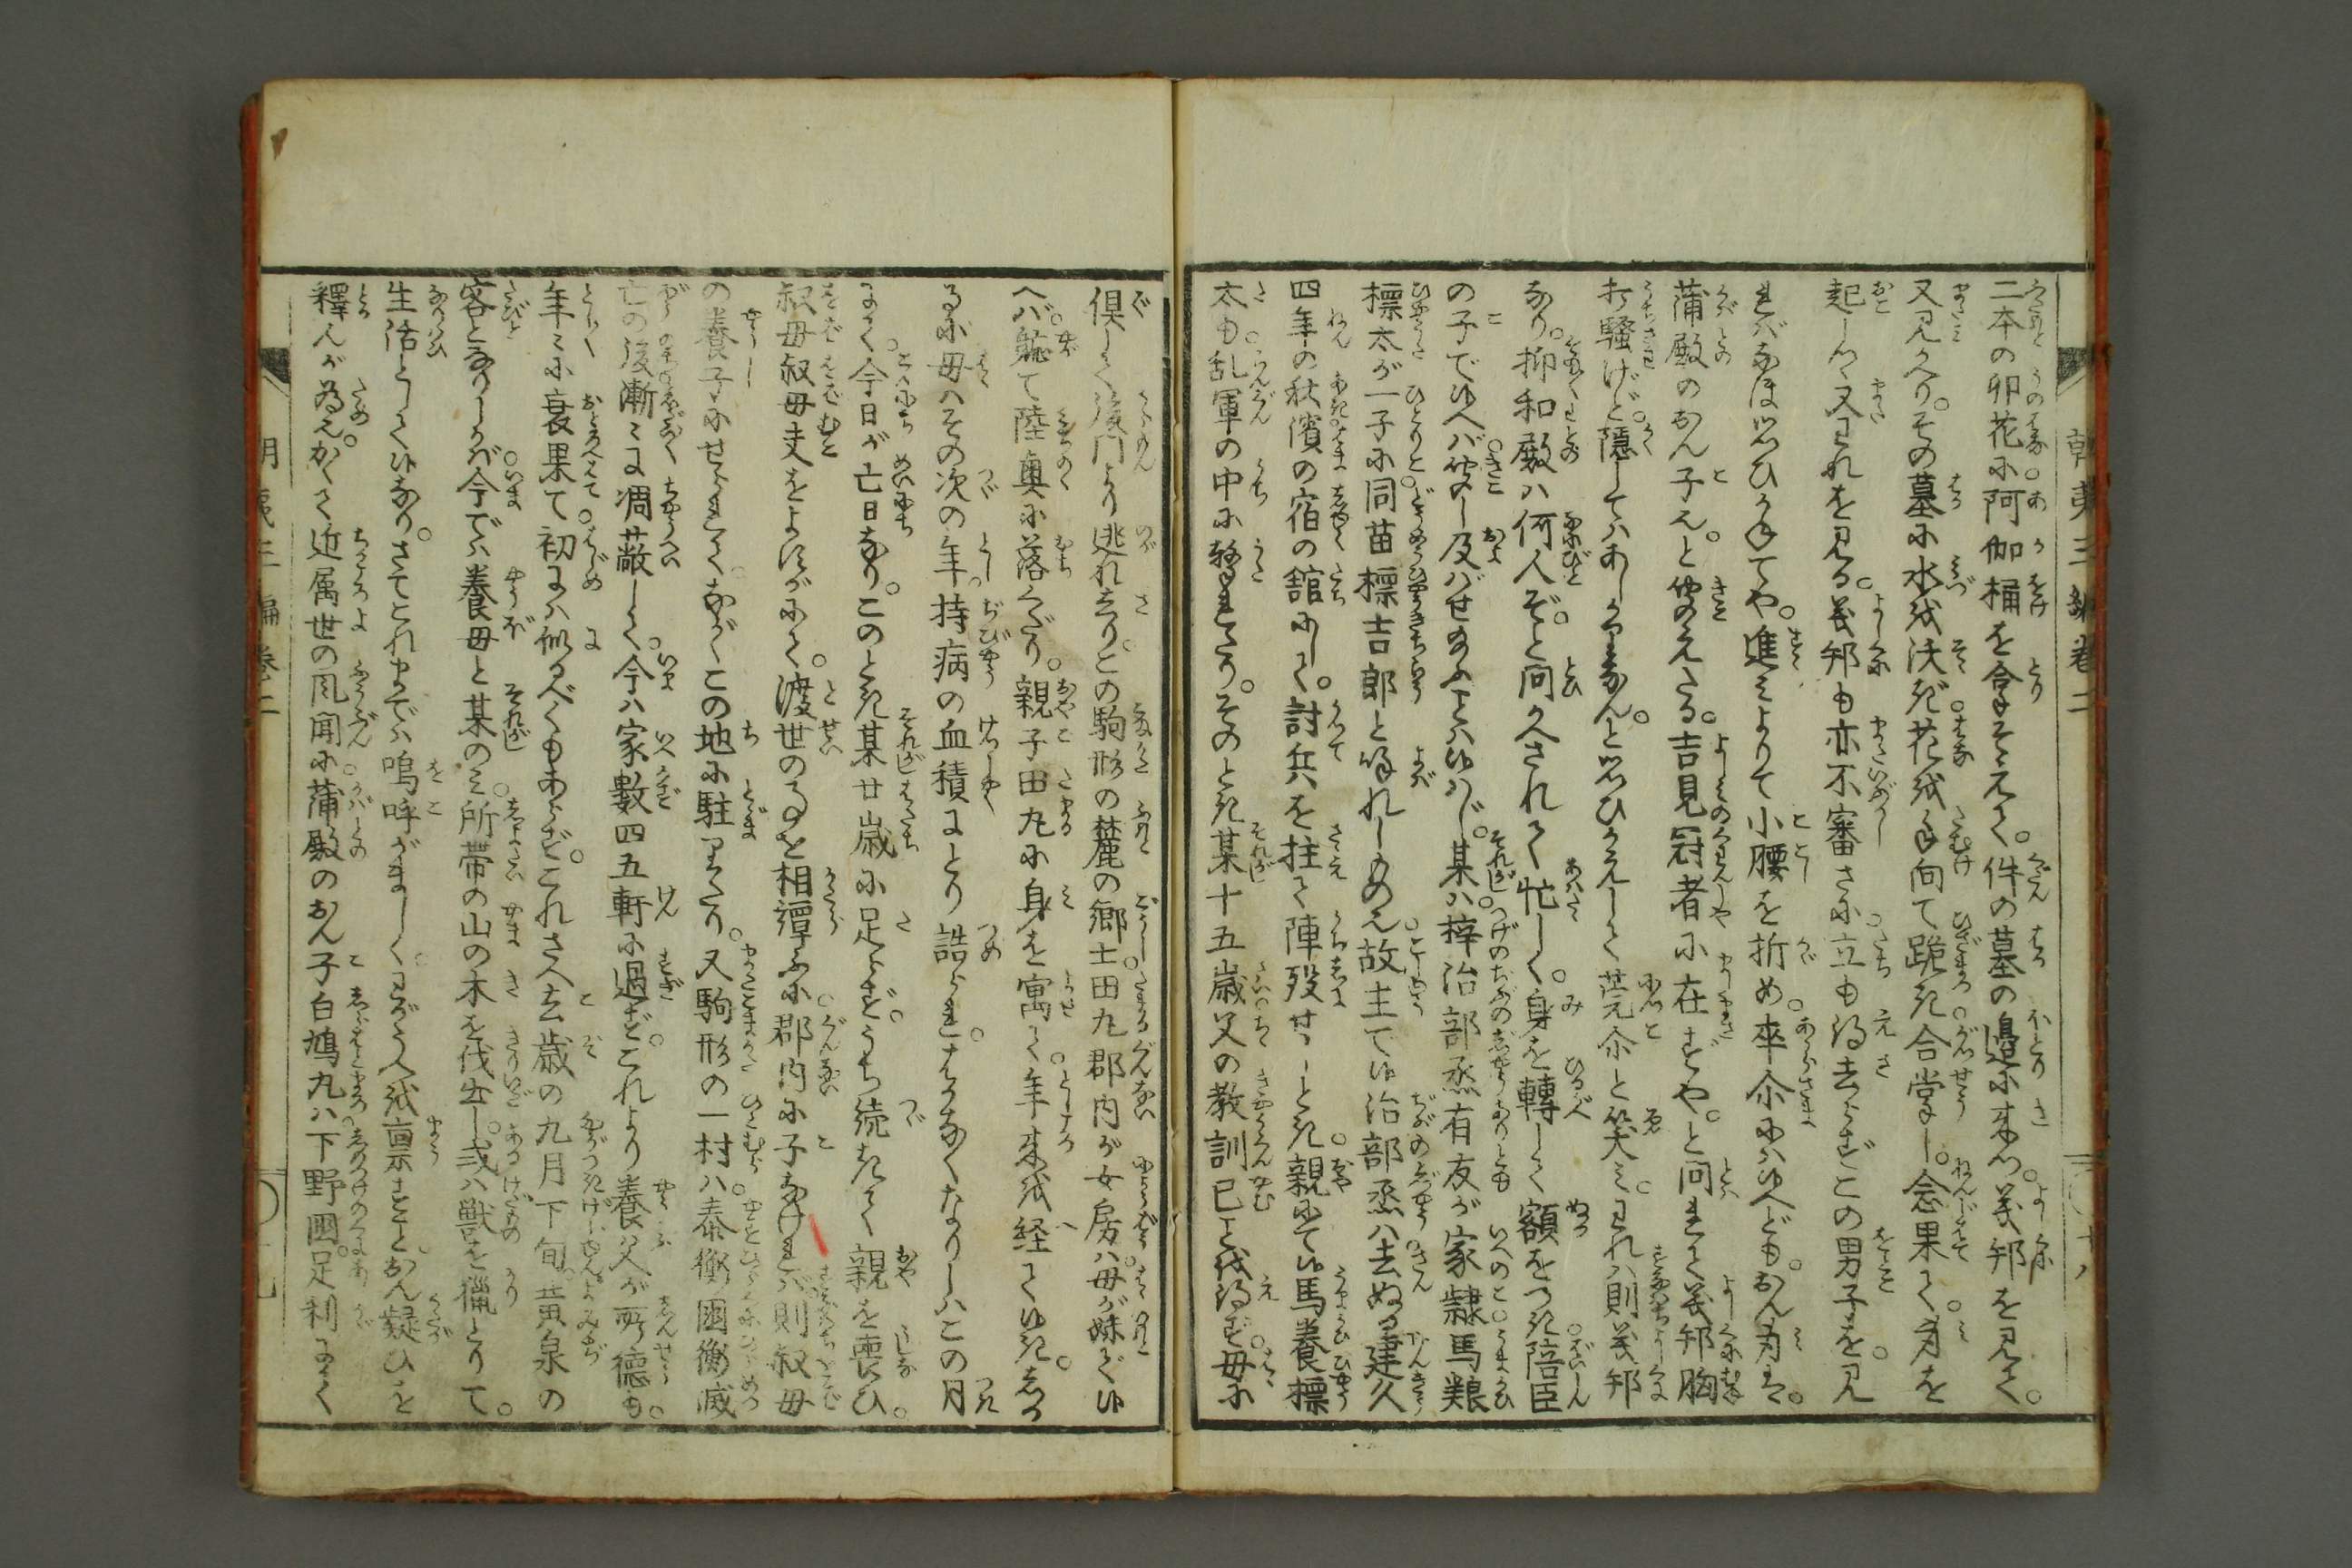 二本の卯花に阿伽桶を合拿そえて。件の墓の邉に来つ。義邦を見て。
又見かへり。その墓に水を沃ぎ花を手向て跪き合掌し。念果て。身を
起しつゝ又われを見る。義邦も亦不審さに立も得去らずこの男子を見
ればなほ思ひかねてや。進みよりて小腰を折め。卒尓には候へども。おん身は。
蒲殿のおん子にて。と聞えたる。吉見冠者に在ずや。と問れて義邦胸
打騒げど。隠してはあしかりなん。と思ひかへして莞尓と笑み。われは則義邦
なり。抑和殿は何人ぞ。と問かへされて忙しく。身を轉して額をつき陪臣
の子で候へば。聞し及ばせ給ふまじ候はじ。某は。梓治部丞有友が家隷馬粮
標太が一子に同苗標吉郎と呼れしもの也。故主て候治部丞は去ぬる建久
四年の秋濱の宿の舘にして。討兵を拄て陣歿せしとき。親にて候馬養標
太も。乱軍の中に撃れたり。そのとき某十五歳父の教訓已を得ず。母に
倶して後門より逃れ去り。この駒形の麓の郷士田丸郡内が女房は。母が妹で候
へば。軈て陸奥に落くだり。親子田丸に身を寓て。年来を経て候き。しか
るに母はその次の年。持病の血積にとり詰られ。はかなくなりしはこの月
にて。今日が亡日なり。このとき某廿歳に足らず。うち続きて親を喪ひ。
叔母叔母夫をよすがにて。渡世の事を相譚ふに郡内に子なければ則叔母
の養子にせられて。ながくこの地に駐りたり。又駒形の一村は。泰衡國衡滅
亡の後漸々に凋敝して。今は家數四五軒に過ず。これより養父が所徳も。
年々に衰果て。初には似るべくもあらず。これさへ去歳の九月下旬。黄泉の
客となりしかば今では養母と某のみ。所帯の山の木を伐出し。或は獣を獵とりて。
生活として候なり。さてこれまでは嗚呼がましく。わがうへを稟すことおん疑ひを
釋んが為也。かくて近属世の風聞に。蒲殿のおん子白鳩丸は。下野國。足利にて